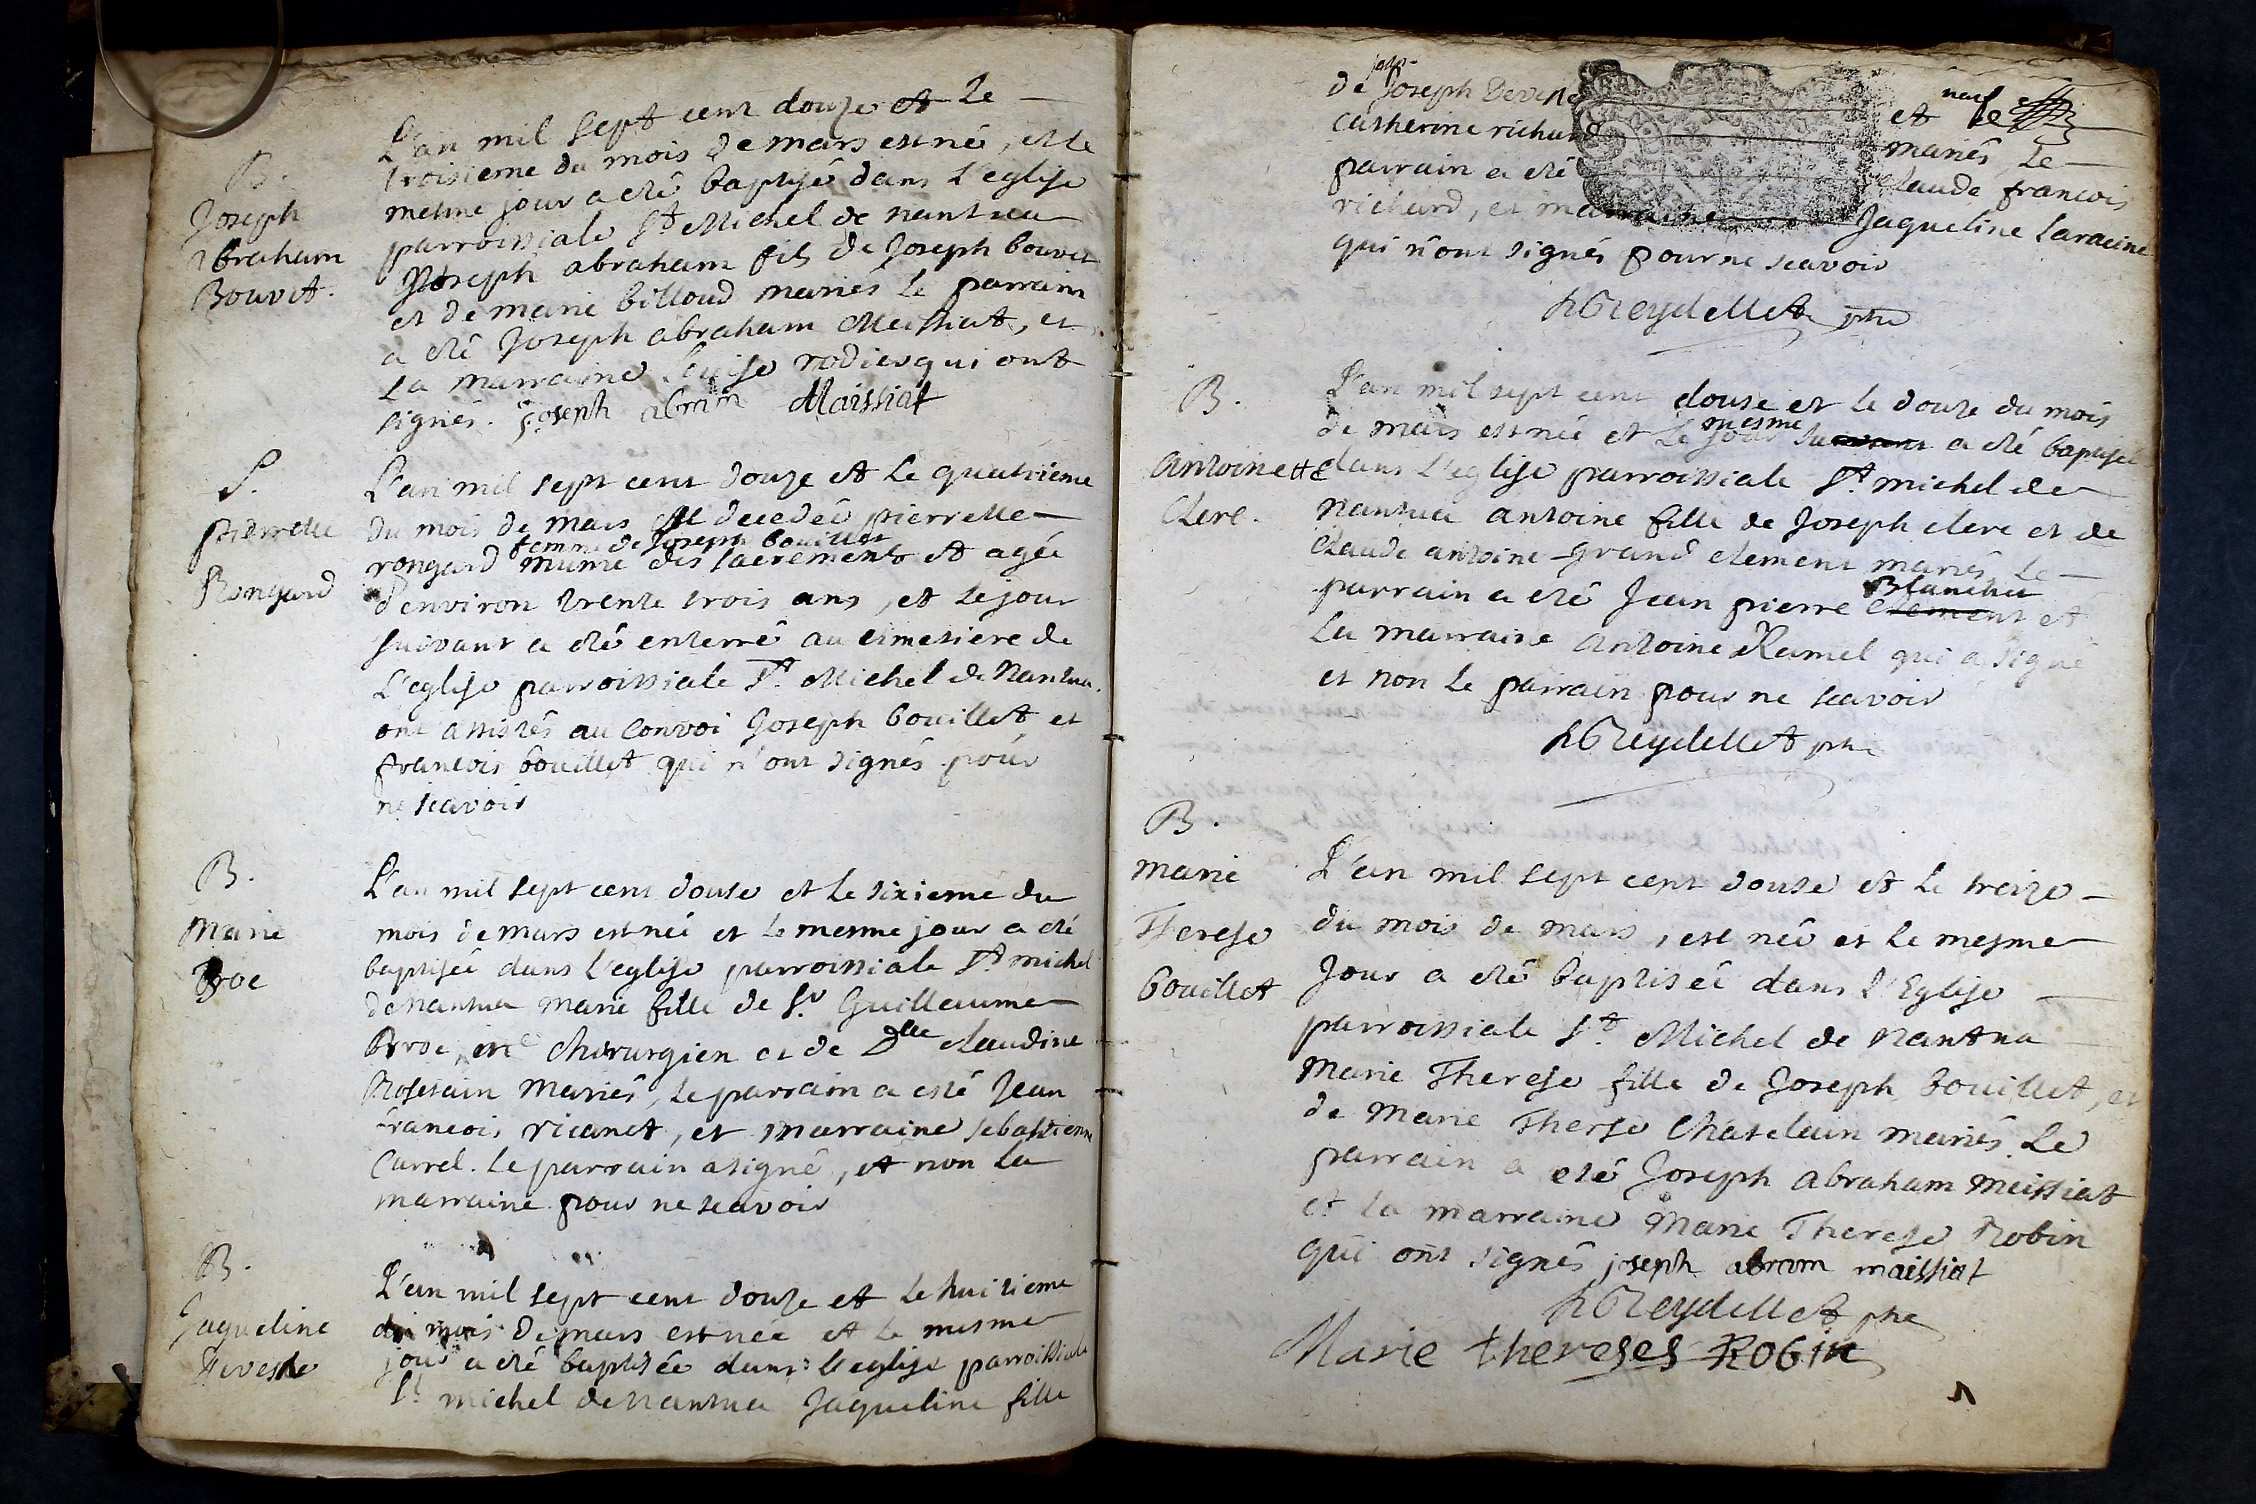 B.
Joseph
Abraham
Bouvet.
L'an mil sept cent douze et Le
troisieme du mois de mars est né, et le
mesme jour a eté baptisé dans L'eglise
parroissiale St Michel de nantua
Joseph abraham fils de Joseph bouvet
et de marie billoud mariés Le parrain
a eté Joseph abraham Meissiat, et
La marraine Louise rodies qui ont
signés. joseph abram Maissiat
S.
pierrette
Rongard
L'an mil sept cent douze et Le quatrieme
du mois de mars est decedée pierrette
femme de Joseph bouillet
rongard munie des sacrements et agée
d'environ trente trois ans, et Le jour
suivant a eté enterré au cimetiere de
L'eglise parroissiale St. Michel de Nantua.
ont assistés au convoi Joseph bouillet et
francois bouillet qui n'ont signés pour
ne scavoir
B.
Marie
Broe
L'an mil sept cent douse et le sixieme du
mois de mars est née et Le mesme jour a eté
baptisée dans L'eglise parroissiale St michel
de nantua marie fille de Sr Guillaume
Broe, me chirurgien et de Dlle claudine
Rosetain Mariés, Le parrain a esté Jean
francois ricanet, et marraine sebastienne
Carrel. Le parrain a signé, et non La
marraine pour ne scavoir
B.
Jaqueline
L'an mil sept cent douze et Le huitieme
du mois de mars est née et Le mesme
jour a eté baptisée dans L'eglise parroissiale
St michel de nantua Jaqueline fille
de Joseph et
catherine richard mariés, Le
parrain a eté claude francois
richard, et marraine Jaqueline Laracine
qui n'ont signés pour ne scavoir
Reydellet ptre
B.
Antoinette
Clerc.
L'an mil sept cent douse et Le douze du mois
mesme
de mars est née et Le jour suivant a eté baptisée
dans L'eglise parroissiale St. michel de
Nantua antoine fille de Joseph clerc et de
claude antoine Grand clement mariés Le
Blanchet
parrain a eté Jean pierre clement et
La marraine Antoine Ramel qui a signé
et non Le parrain pour ne scavoir
Reydellet ptre
B.
Marie
Therese
bouillet
L'an mil sept cent douse et Le treize
du mois de mars, est née et Le mesme
Jour a eté baptisée dans L'Eglise
parroissiale St. Michel de Nantua
Marie Therese fille de Joseph bouillet, et
de Marie Therese Chatelain mariés. Le
parrain a eté Joseph Abraham Meissiat
et La marraine Marie Therese Robin
qui ont signés joseph abram maissiat
Reydellet ptre
Marie thereses Robin